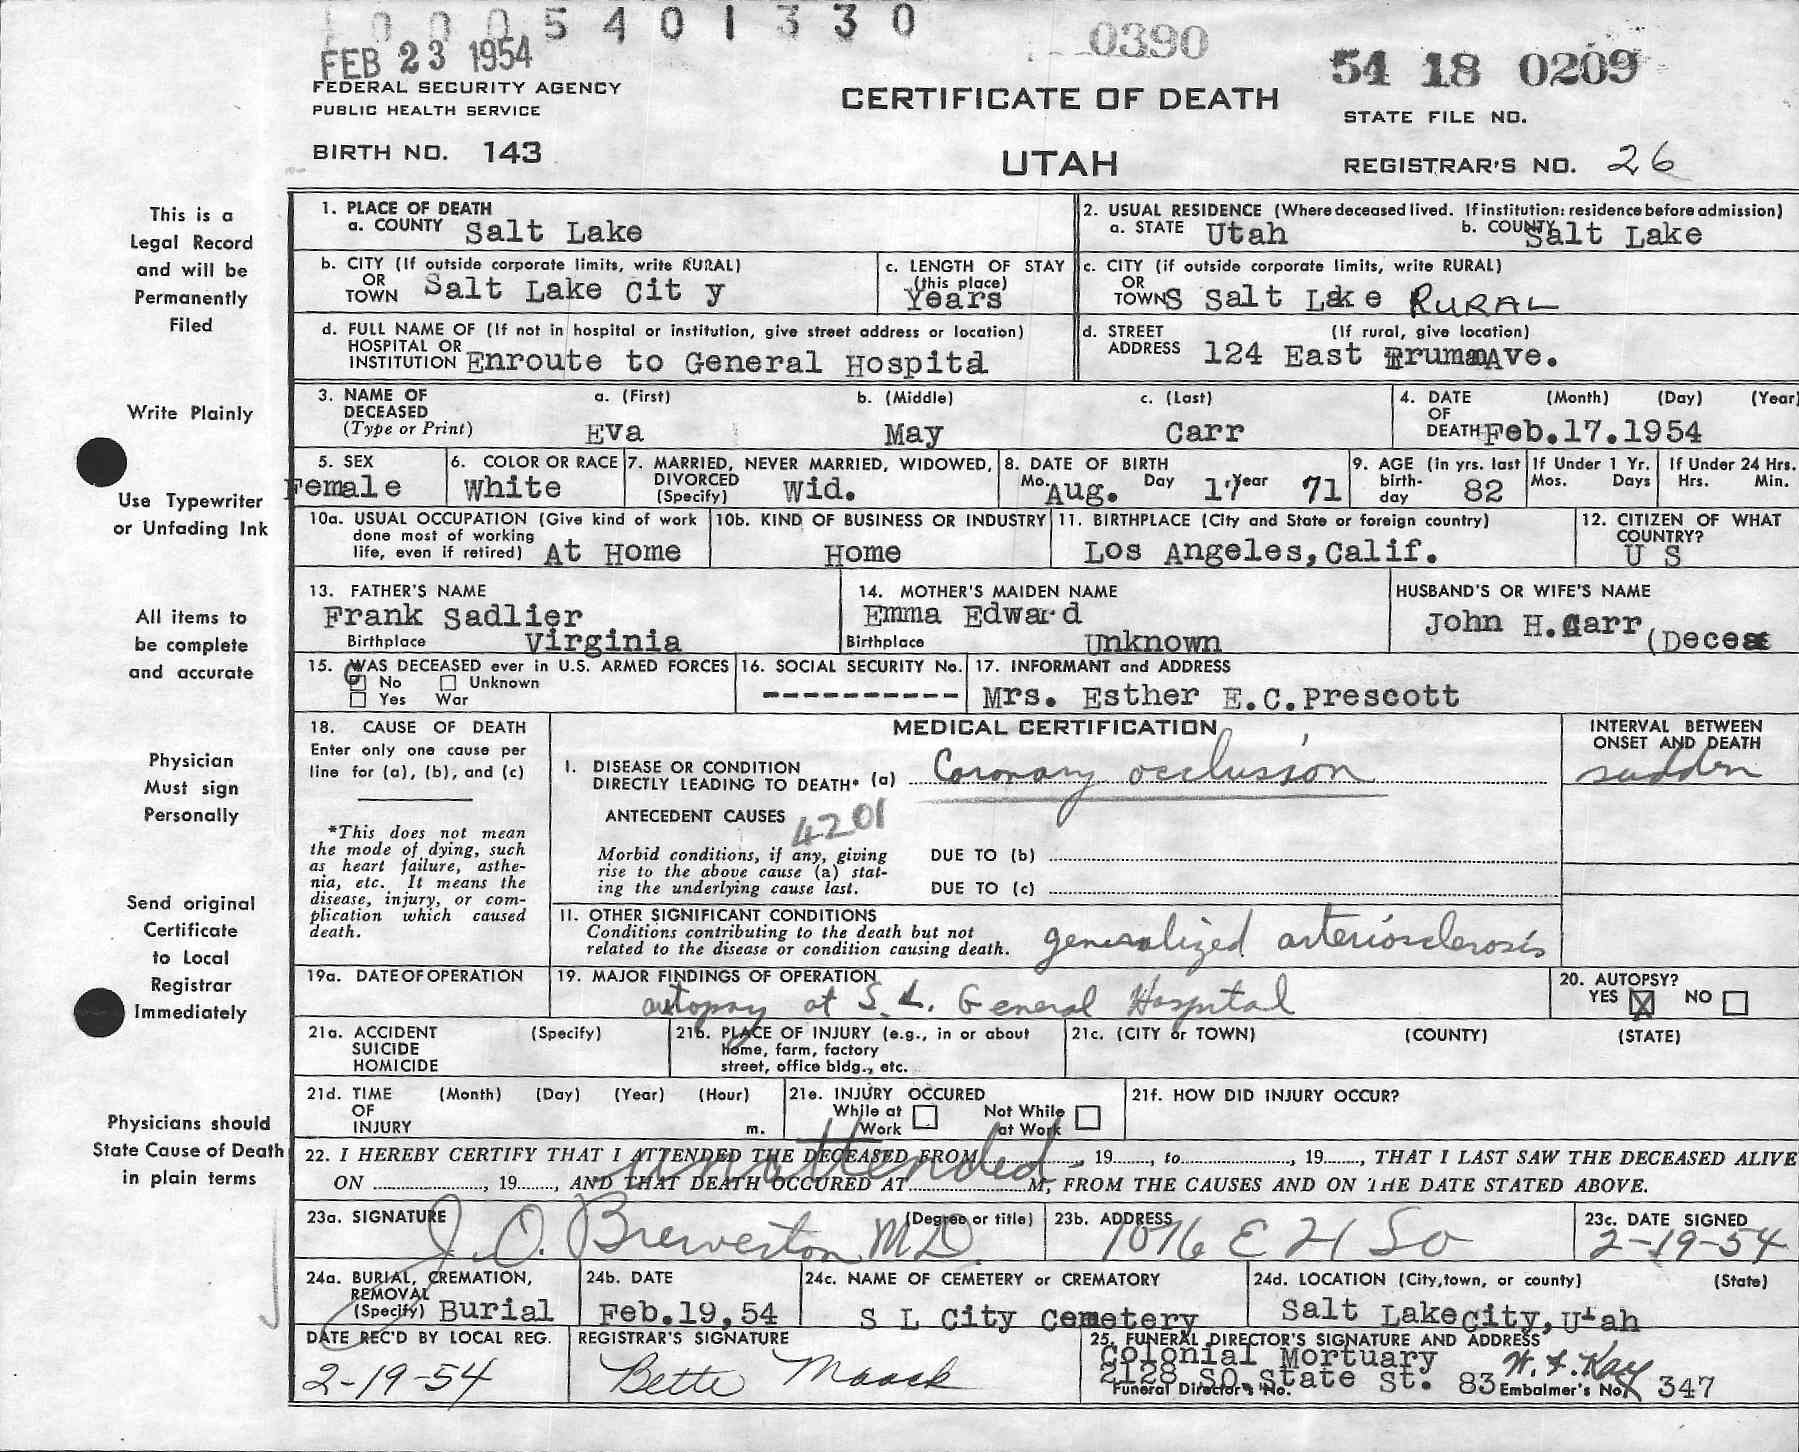 0005401330
0390
FEB 23 1954
54 18 0209
FEDERAL SECURITY AGENCY
PUBLIC HEALTH SERVICE
CERTIFICATE OF DEATH
STATE FILE NO.
BIRTH NO. 143
UTAH
REGISTRAR'S NO. 26
This is a
Legal Record
and will be
Permanently
Filed
Write Plainly
Use Typewriter
or Unfading Ink
All items to
be complete
and accurate
Physician
Must sign
Personally
Send original
Certificate
to Local
Registrar
Immediately
Physicians should
State Cause of Death
in plain terms
1. PLACE OF DEATH
a. COUNTY Salt Lake
2. USUAL RESIDENCE (Where deceased lived. If institution: residence before admission)
a. STATE Utah b. COUNTY Salt Lake
b. CITY (If outside corporate limits, write RURAL)
OR
TOWN Salt Lake Cit y
c. LENGTH OF STAY
(this place)
Years
c. CITY (if outside corporate limits, write RURAL)
OR
TOWN S Salt Lake RURAL
d. FULL NAME OF (If not in hospital or institution, give street address or location)
HOSPITAL OR
INSTITUTION Enroute to General Hospital
d. STREET (If rural, give location)
ADDRESS 124 East Truman Ave.
3. NAME OF
DECEASED
(Type or Print)
a. (First) b. (Middle) c. (Last)
Eva May Carr
4. DATE (Month) (Day) (Year)
OF
DEATH Feb.17.1954
5. SEX
Female
6. COLOR OR RACE
White
7. MARRIED, NEVER MARRIED, WIDOWED,
DIVORCED
(Specify) Wid.
8. DATE OF BIRTH
Mo. Aug. Day 17 Year 71
9. AGE (in yrs. last
birth-
day 82
If Under 1 Yr.
Mos. Days
If Under 24 Hrs.
Hrs. Min.
10a. USUAL OCCUPATION (Give kind of work
done most of working
life, even if retired) At Home
10b. KIND OF BUSINESS OR INDUSTRY
Home
11. BIRTHPLACE (City and State or foreign country)
Los Angeles,Calif.
12. CITIZEN OF WHAT
COUNTRY?
U S
13. FATHER'S NAME
Frank Sadlier
Birthplace Virginia
14. MOTHER'S MAIDEN NAME
Emma Edward
Birthplace Unknown
HUSBAND'S OR WIFE'S NAME
John H.Carr
(Deceas
15. WAS DECEASED ever in U.S. ARMED FORCES
No Unknown
Yes War
16. SOCIAL SECURITY No.
----------
17. INFORMANT and ADDRESS
Mrs. Esther E.C.Prescott
18. CAUSE OF DEATH
Enter only one cause per
line for (a), (b), and (c)
*This does not mean
the mode of dying, such
as heart failure, asthe-
nia, etc. It means the
disease, injury, or com-
plication which caused
death.
MEDICAL CERTIFICATION
INTERVAL BETWEEN
ONSET AND DEATH
sudden
I. DISEASE OR CONDITION
DIRECTLY LEADING TO DEATH* (a) Coronary occlusion
ANTECEDENT CAUSES
4201
Morbid conditions, if any, giving
rise to the above cause (a) stat-
ing the underlying cause last.
DUE TO (b)
DUE TO (c)
II. OTHER SIGNIFICANT CONDITIONS
Conditions contributing to the death but not
related to the disease or condition causing death.
generalized arteriosclerosis
19a. DATE OF OPERATION
19. MAJOR FINDINGS OF OPERATION
autopsy at S.L. General Hospital
20. AUTOPSY?
YES X NO
21a. ACCIDENT (Specify)
SUICIDE
HOMICIDE
21b. PLACE OF INJURY (e.g., in or about
home, farm, factory
street, office bldg., etc.
21c. (CITY or TOWN) (COUNTY) (STATE)
21d. TIME (Month) (Day) (Year) (Hour)
OF
INJURY m.
21e. INJURY OCCURED
While at Work
Not While at Work
21f. HOW DID INJURY OCCUR?
22. I HEREBY CERTIFY THAT I ATTENDED THE DECEASED FROM, 19, to, 19, THAT I LAST SAW THE DECEASED ALIVE
unattended
ON, 19, AND THAT DEATH OCCURED AT M, FROM THE CAUSES AND ON THE DATE STATED ABOVE.
23a. SIGNATURE (Degree or title)
J.O. Brewerton MD
23b. ADDRESS
1076 E 21 So
23c. DATE SIGNED
2-19-54
24a. BURIAL, CREMATION,
REMOVAL
(Specify) Burial
24b. DATE
Feb.19,54
24c. NAME OF CEMETERY or CREMATORY
S L City Cemetery
24d. LOCATION (City,town, or county) (State)
Salt LakeCity,Utah
DATE REC'D BY LOCAL REG.
2-19-54
REGISTRAR'S SIGNATURE
Bette Maack
25. FUNERAL DIRECTOR'S SIGNATURE AND ADDRESS
Colonial Mortuary
2128 SO.State St. 83
W. F. Kay
Funeral Director's No. Embalmer's No. 347